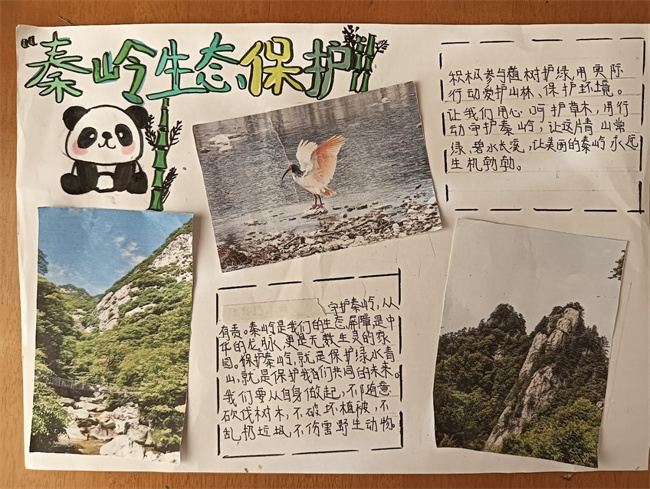 秦岭生态保护
积极参与植树护绿,用实际
行动爱护山林、保护环境。
让我们用心呵护草木,用行
动守护秦岭,让这片青山常
绿、碧水长流,让美丽的秦岭永远
生机勃勃。
守护秦岭,从
有责。秦岭是我们的生态屏障是中
华的龙脉,更是无数生灵的家
园。保护秦岭,就是保护绿水青
山,就是保护我们共同的未来。
我们要从自身做起,不随意
砍伐树木,不破坏植被,不
乱扔垃圾,不伤害野生动物。